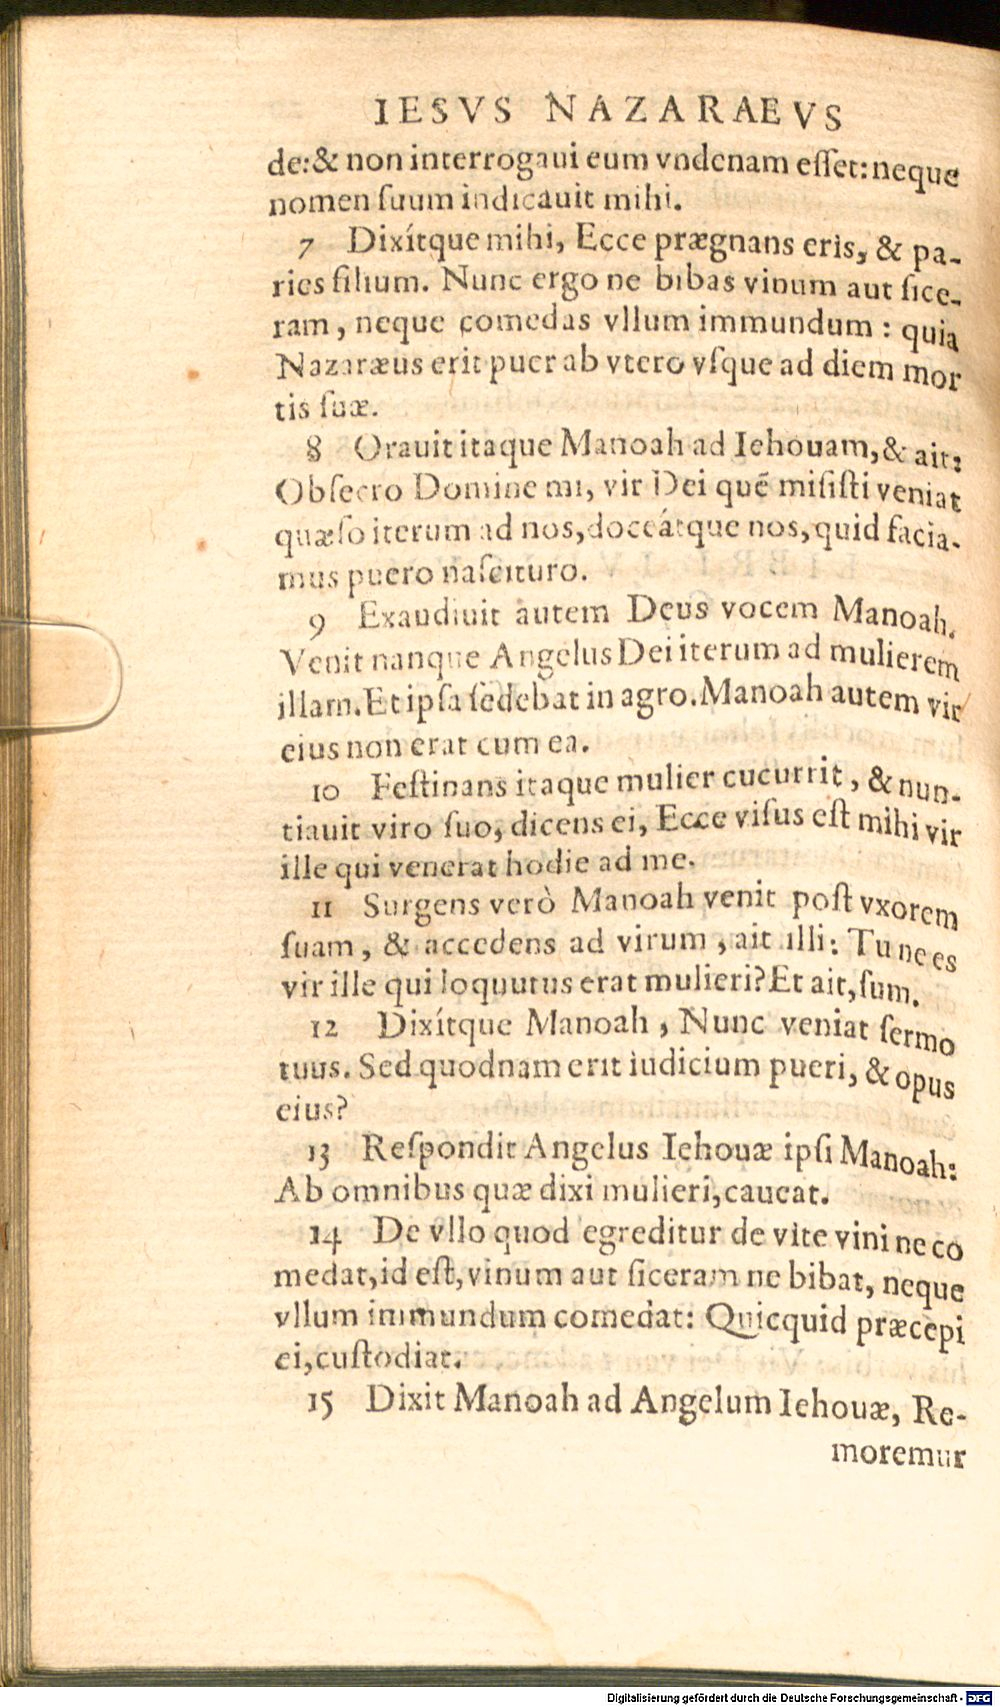 IESVS NAZARAEVS
de:& non interrogaui eum vndenam eſſet: neque
nomen ſuum indicauit mihi.
7 Dixítque mihi, Ecce prægnans eris, & pa-
ries filium. Nunc ergo ne bibas vinum aut ſice-
ram, neque comedas vllum immundum: quia
Nazaræus erit puer ab vtero vſque ad diem mor
tis ſuæ.
8 Orauit itaque Manoah ad Iehouam, & ait:
Obſecro Domine mi, vir Dei quẽ miſiſti veniat
quæſo iterum ad nos, doceátque nos, quid facia-
mus puero naſcituro.
9 Exaudiuit autem Deus vocem Manoah.
Venit nanque Angelus Dei iterum ad mulierem
illam. Et ipſa ſedebat in agro. Manoah autem vir
eius non erat cum ea.
10 Feſtinans itaque mulier cucurrit, & nun-
tiauit viro ſuo, dicens ei, Ecce viſus eſt mihi vir
ille qui venerat hodie ad me.
11 Surgens verò Manoah venit poſt vxorem
ſuam, & accedens ad virum, ait illi: Tu ne es
vir ille qui loquutus erat mulieri? Et ait, ſum.
12 Dixítque Manoah, Nunc veniat ſermo
tuus. Sed quodnam erit iudicium pueri, & opus
eius?
13 Reſpondit Angelus Iehouæ ipſi Manoah:
Ab omnibus quæ dixi mulieri, caueat.
14 De vllo quod egreditur de vite vini ne co
medat, id eſt, vinum aut ſiceram ne bibat, neque
vllum immundum comedat: Quicquid præcepi
ei, cuſtodiat.
15 Dixit Manoah ad Angelum Iehouæ, Re-
moremur
Digitalisierung gefördert durch die Deutsche Forschungsgemeinschaft - DFG